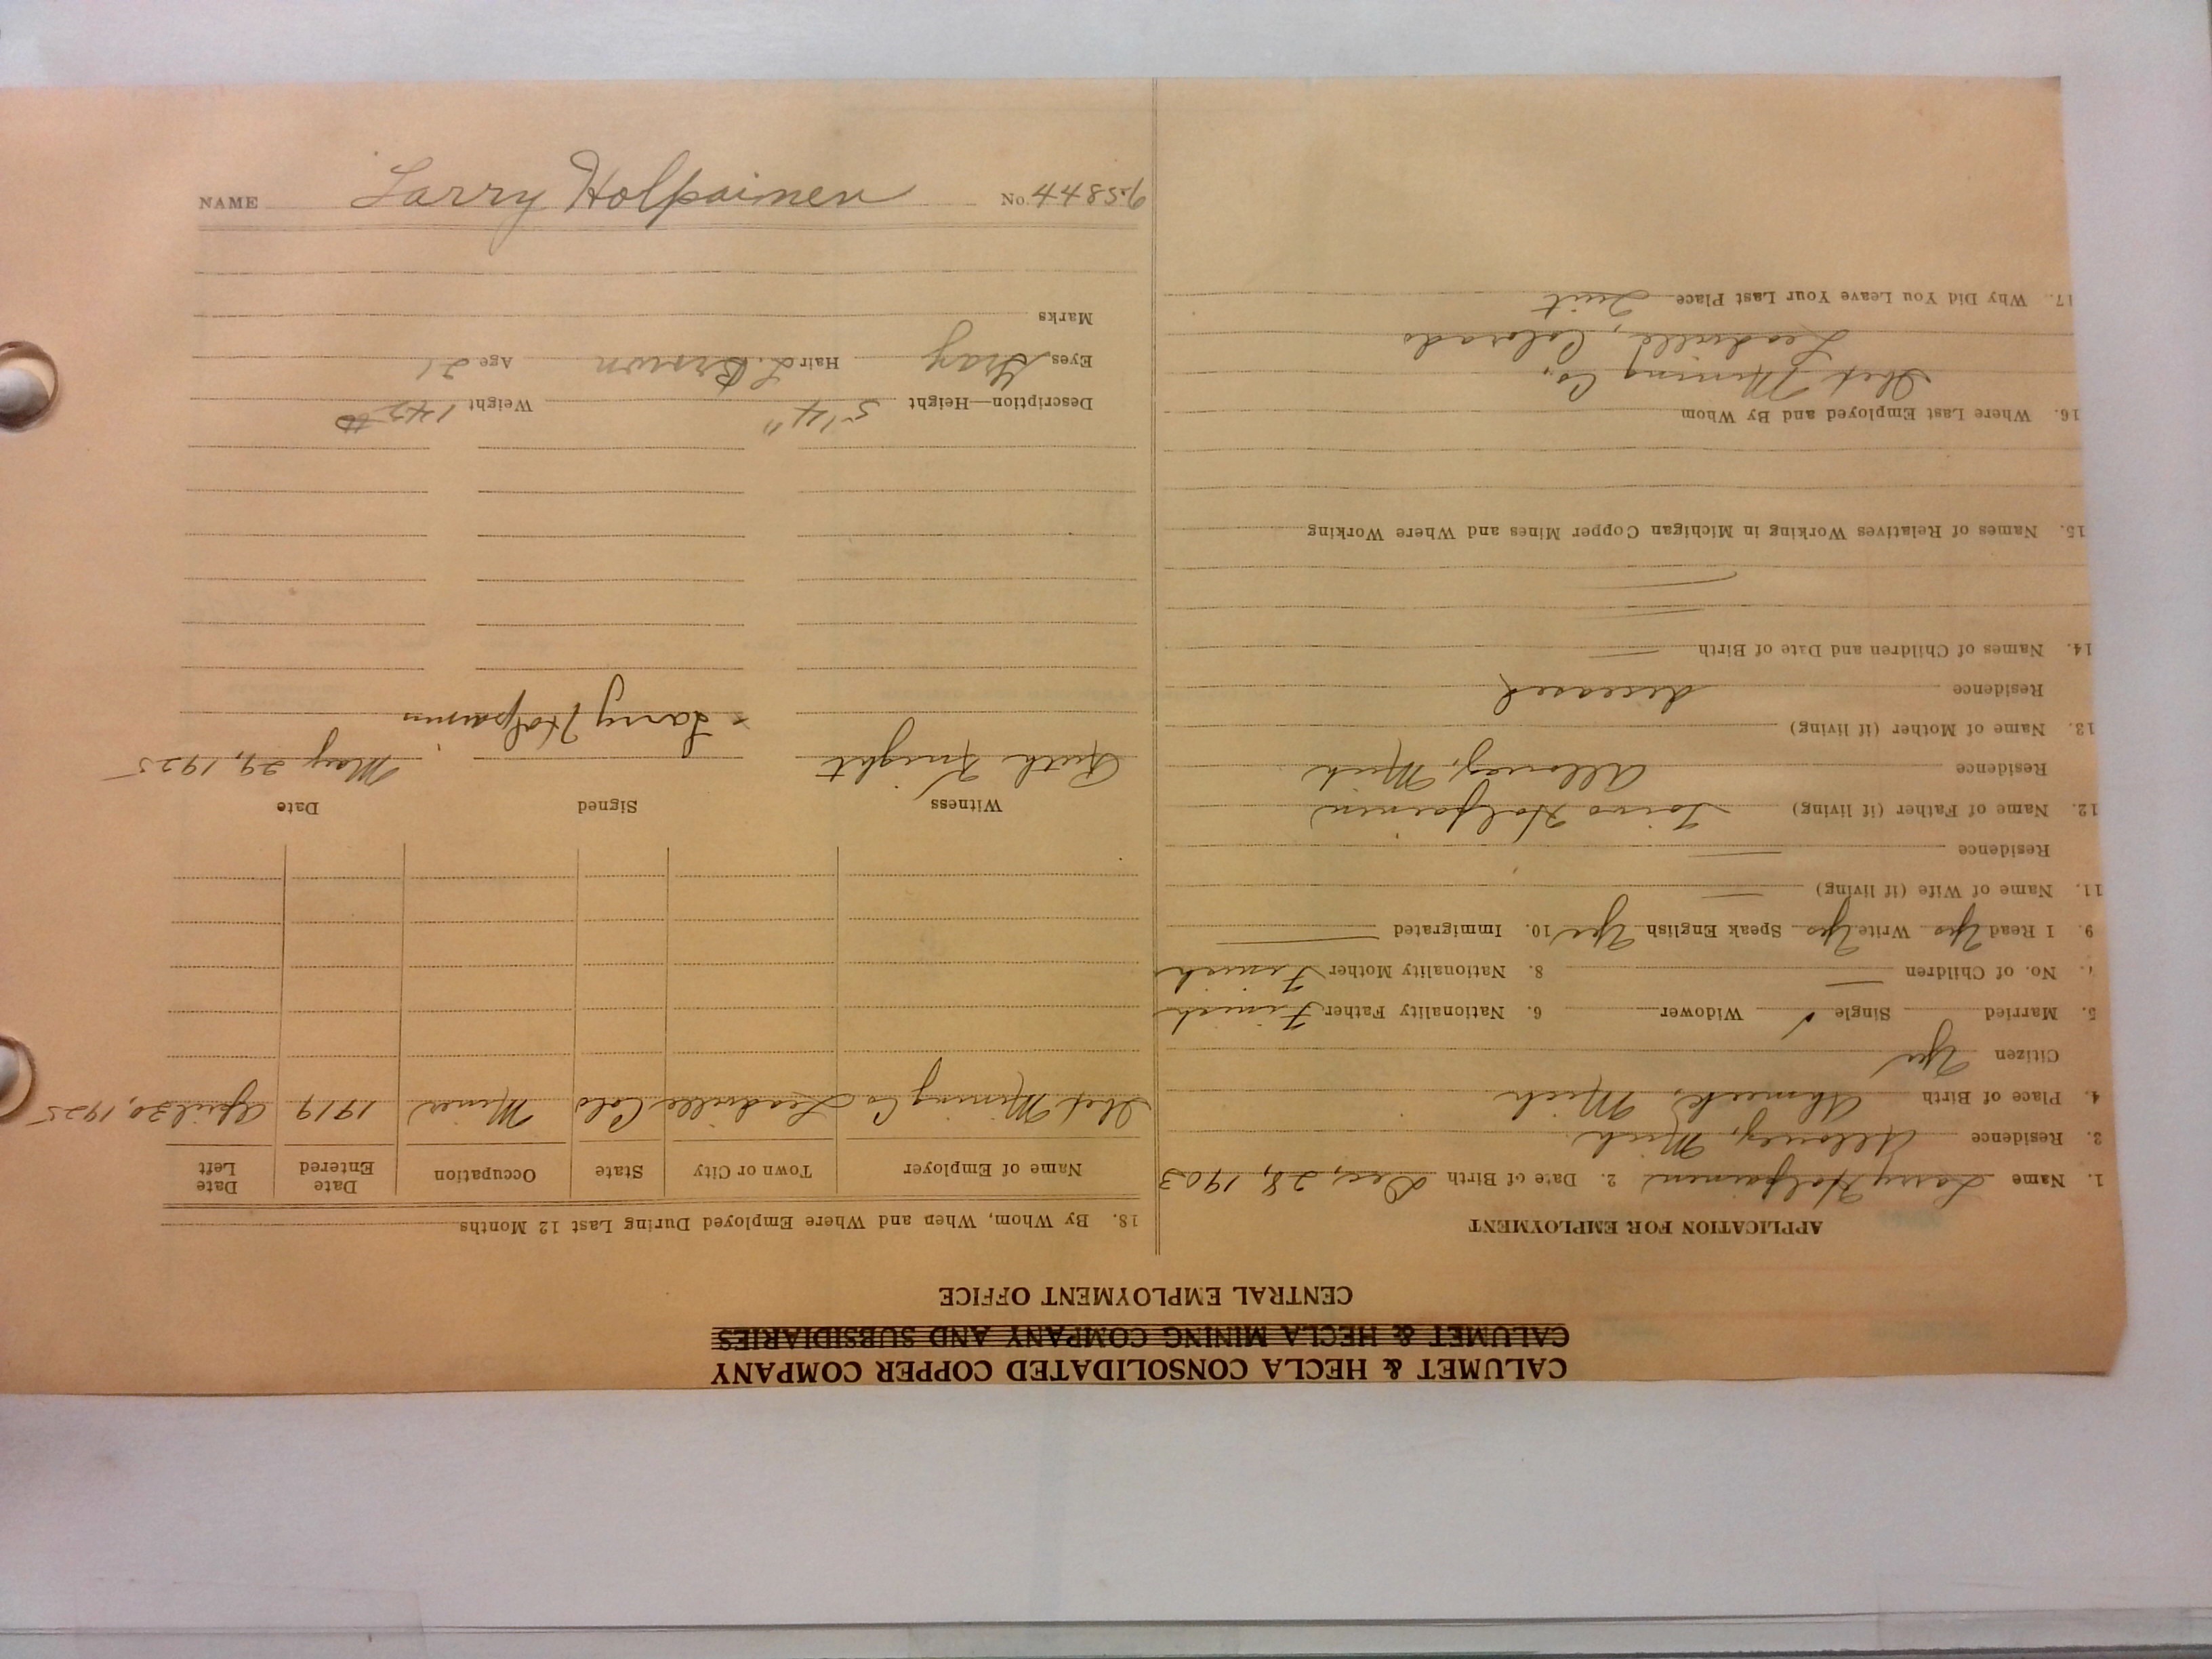 CALUMET & HECLA CONSOLIDATED COPPER COMPANY
CALUMET & HECLA MINING COMPANY AND SUBSIDIARIES
CENTRAL EMPLOYMENT OFFICE
APPLICATION FOR EMPLOYMENT
1. Name Larry Holpainen 2. Date of Birth Dec. 28, 1903
3. Residence Allouez, Mich
4. Place of Birth Ahmeek, Mich
Citizen Yes
5. Married Single ✓ Widower 6. Nationality Father Finnish
7. No. of Children — 8. Nationality Mother Finnish
9. I Read Yes Write Yes Speak English Yes 10. Immigrated —
11. Name of Wife (if living) —
Residence —
12. Name of Father (if living) Toivo Holpainen
Residence Allouez, Mich
13. Name of Mother (if living)
Residence deceased
14. Names of Children and Date of Birth —
15. Names of Relatives Working in Michigan Copper Mines and Where Working
16. Where Last Employed and By Whom
Mining Co.
Leadville, Colorado
17. Why Did You Leave Your Last Place Quit
18. By Whom, When and Where Employed During Last 12 Months
Name of Employer Town or City State Occupation Date Entered Date Left
Mining Co Leadville Colo Miner 1919 April 30, 1925
Witness Signed Date
Ruth Knight May 29, 1925
x Larry Holpainen
Description—Height 5'4" Weight 145 #
Eyes Gray Hair L. Brown Age 21
Marks
NAME Larry Holpainen No. 44856